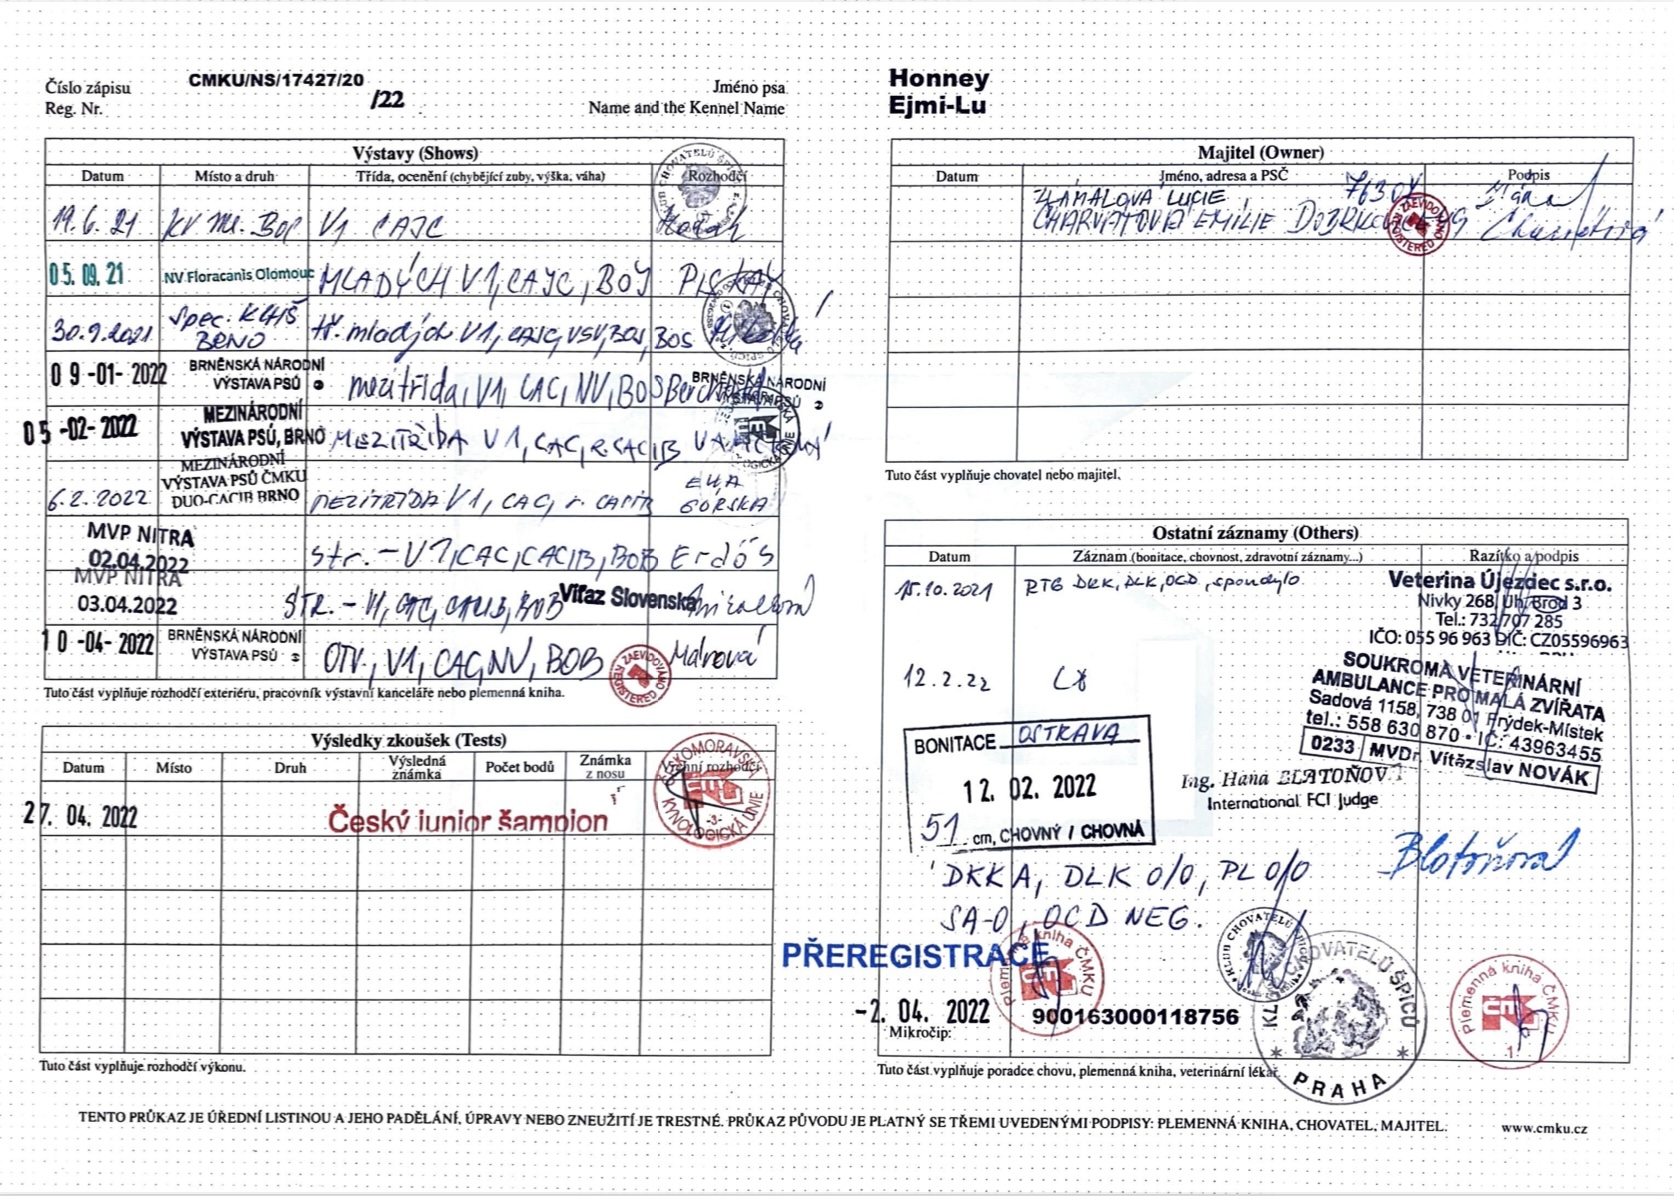 Číslo zápisu
Reg. Nr.
CMKU/NS/17427/20
/22
Jméno psa
Name and the Kennel Name
Honney
Ejmi-Lu
Výstavy (Shows)
Datum Místo a druh Třída, ocenění (chybějící zuby, výška, váha) Rozhodčí
19.6.21 KV Ml. Bol V1 CAJC
05.09.21 NV Floracanis Olomouc MLADÝCH V1, CAJC, BOJ
30.9.2021 Spec. KCHŠ BRNO tř. mladých V1, CAJC, VSV, BOJ, BOS
09-01-2022 BRNĚNSKÁ NÁRODNÍ VÝSTAVA PSŮ mezitřída, V1, CAC, NV, BOS
BRNĚNSKÁ NÁRODNÍ
VÝSTAVA PSŮ
05-02-2022 MEZINÁRODNÍ VÝSTAVA PSŮ, BRNO MEZITŘÍDA V1, CAC, R.CACIB
6.2.2022 MEZINÁRODNÍ VÝSTAVA PSŮ ČMKU DUO-CACIB BRNO MEZITŘÍDA V1, CAC, r. CACIB EWA GÓRSKA
MVP NITRA 02.04.2022 str. - V1, CAC, CACIB, BOB Erdős
MVP NITRA 03.04.2022 STR. - V1, CAC, CACIB, BOB Víťaz Slovenska
10-04-2022 BRNĚNSKÁ NÁRODNÍ VÝSTAVA PSŮ OTV., V1, CAC, NV, BOB
ZAEVIDOVÁNO
REGISTERED
Tuto část vyplňuje rozhodčí exteriéru, pracovník výstavní kanceláře nebo plemenná kniha.
Výsledky zkoušek (Tests)
Datum Místo Druh Výsledná známka Počet bodů Známka z nosu Vrchní rozhodčí
27. 04. 2022 Český junior šampion
ČESKOMORAVSKÁ KYNOLOGICKÁ UNIE
-3-
Tuto část vyplňuje rozhodčí výkonu.
Majitel (Owner)
Datum Jméno, adresa a PSČ Podpis
ZÁMALOVÁ LUCIE 76304
CHARVÁTOVÁ EMILIE
ZAEVIDOVÁNO
REGISTERED
Tuto část vyplňuje chovatel nebo majitel.
Ostatní záznamy (Others)
Datum Záznam (bonitace, chovnost, zdravotní záznamy...) Razítko a podpis
15.10.2021 RTG DKK, DLK, OCD, spondylo
Veterina Újezdec s.r.o.
Nivky 268, Uh. Brod 3
Tel.: 732 707 285
IČO: 055 96 963 DIČ: CZ05596963
12.2.22
SOUKROMÁ VETERINÁRNÍ
AMBULANCE PRO MALÁ ZVÍŘATA
Sadová 1158, 738 01 Frýdek-Místek
tel.: 558 630 870 • IČ: 43963455
0233 MVDr. Vítězslav NOVÁK
BONITACE OSTRAVA
12. 02. 2022
51 cm, CHOVNÝ / CHOVNÁ
Ing. Hana BLATOŇOVÁ
International FCI Judge
DKK A, DLK 0/0, PL 0/0
SA-0, OCD NEG.
PŘEREGISTRACE
-2. 04. 2022
Mikročip:
900163000118756
Plemenná kniha ČMKU
KLUB CHOVATELŮ ŠPICŮ
PRAHA
Plemenná kniha ČMKU
1
Tuto část vyplňuje poradce chovu, plemenná kniha, veterinární lékař.
TENTO PRŮKAZ JE ÚŘEDNÍ LISTINOU A JEHO PADĚLÁNÍ, ÚPRAVY NEBO ZNEUŽITÍ JE TRESTNÉ. PRŮKAZ PŮVODU JE PLATNÝ SE TŘEMI UVEDENÝMI PODPISY: PLEMENNÁ KNIHA, CHOVATEL, MAJITEL.
www.cmku.cz